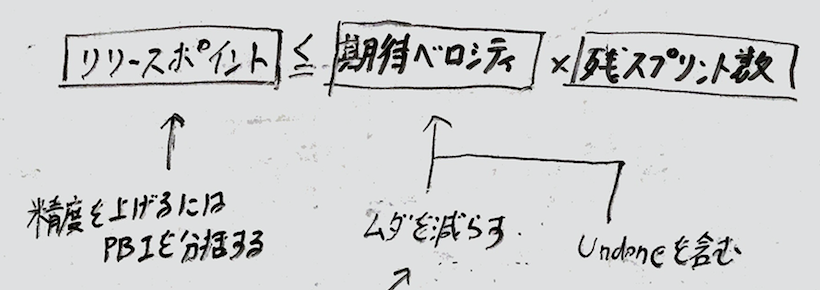 リリースポイント ≦ 期待ベロシティ × 残スプリント数
精度を上げるには
PBIを分括する
ムダを減らす
Undoneを含む